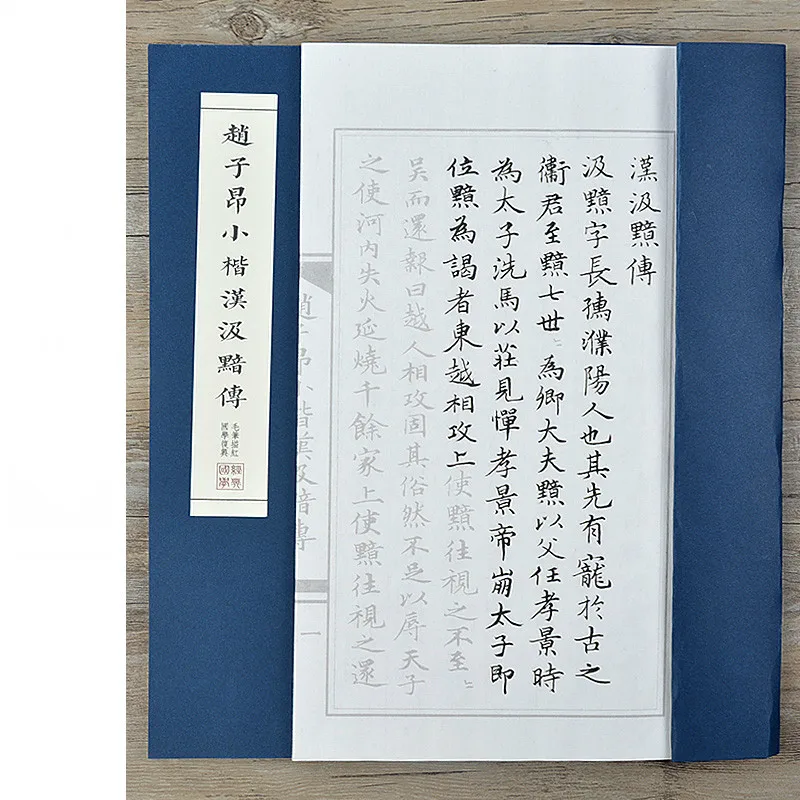 趙子昂小楷漢汲黯傳
毛筆描紅
國學復興
經典國學
漢汲黯傳
汲黯字長孺濮陽人也其先有寵於古之
衞君至黯七世〻為卿大夫黯以父任孝景時
為太子洗馬以莊見憚孝景帝崩太子即
位黯為謁者東越相攻上使黯往視之不至〻
吳而還報曰越人相攻固其俗然不足以辱天子
之使河內失火延燒千餘家上使黯往視之還
趙子昂小楷漢汲黯傳
一